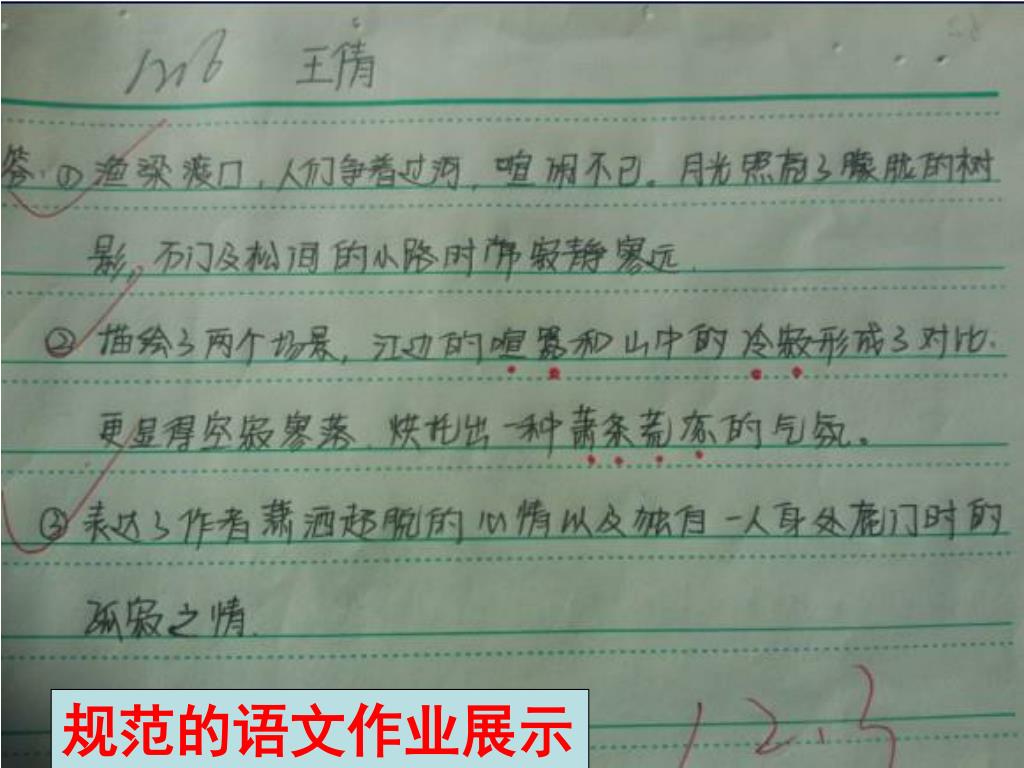 1206 王倩
答:①渔梁渡口,人们争着过河,喧闹不已。月光照亮了朦胧的树
影,石门及松间的小路时常寂静寥远.
②描绘了两个场景,江边的喧嚣和山中的冷寂形成了对比.
更显得空寂寥落.烘托出一种萧条荒凉的气氛。
③表达了作者潇洒超脱的心情以及独自一人身处鹿门时的
孤寂之情.
规范的语文作业展示
12.3